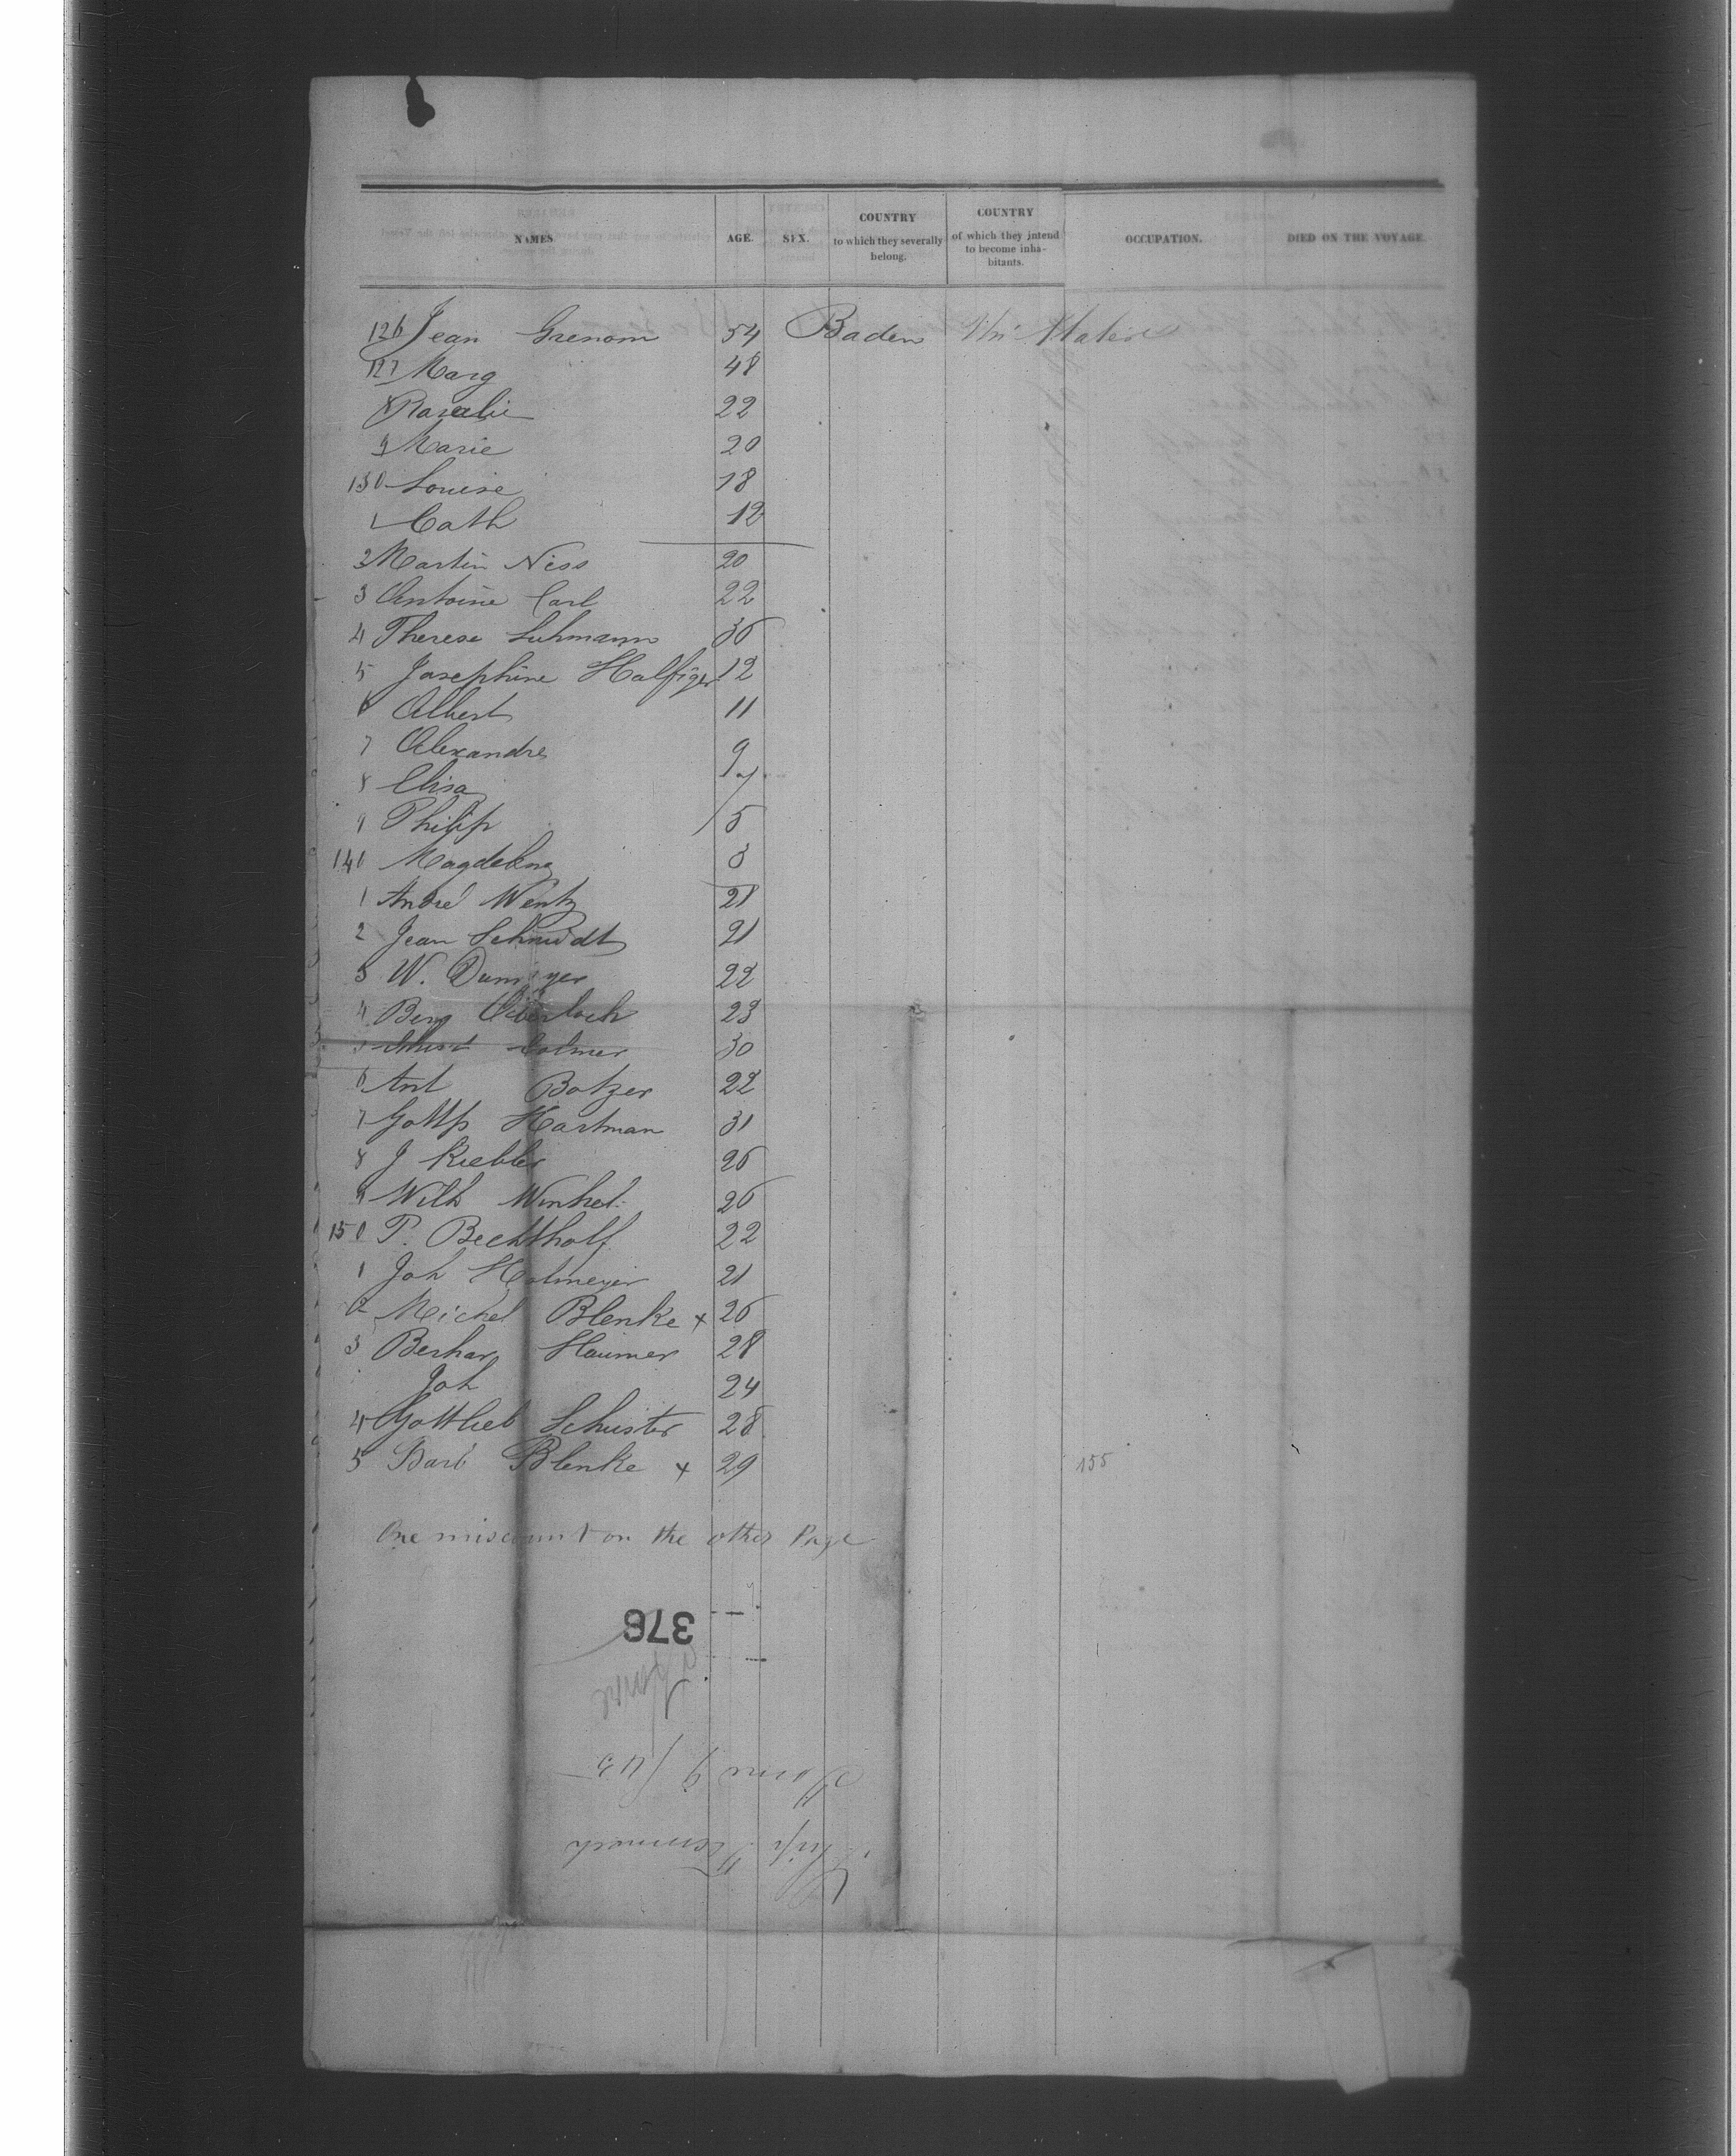 NAMES. AGE. SEX. COUNTRY to which they severally belong. COUNTRY of which they intend to become inhabitants. OCCUPATION. DIED ON THE VOYAGE.
126 Jean Grenom 54 Baden Uni States
127 Marg 48
8 Rasalie 22
9 Marie 20
130 Louise 18
1 Cath 12
2 Martin Niss 20
3 Antoine Carl 22
4 Therese Luhmann 36
5 Josephine Halfiger 12
6 Albert 11
7 Alexandre 9
8 Elisa 7
9 Philip 5
140 Magdelena 3
1 André Wentz 21
2 Jean Schmidt 21
3 W. 22
4 Benj 23
5 30
6 Ant Botzer 22
7 Gottfs Hartman 31
8 J Riebler 26
9 Wilh Winkel 26
150 P. Bechtholf 22
1 Joh Holmeyer 21
2 Michel Blenke x 26
3 Berhar Haumer 28
Joh 24
4 Gottlieb Schuster 28
5 Barb Blenke x 29
155
One miscount on the other Page
376
Ship